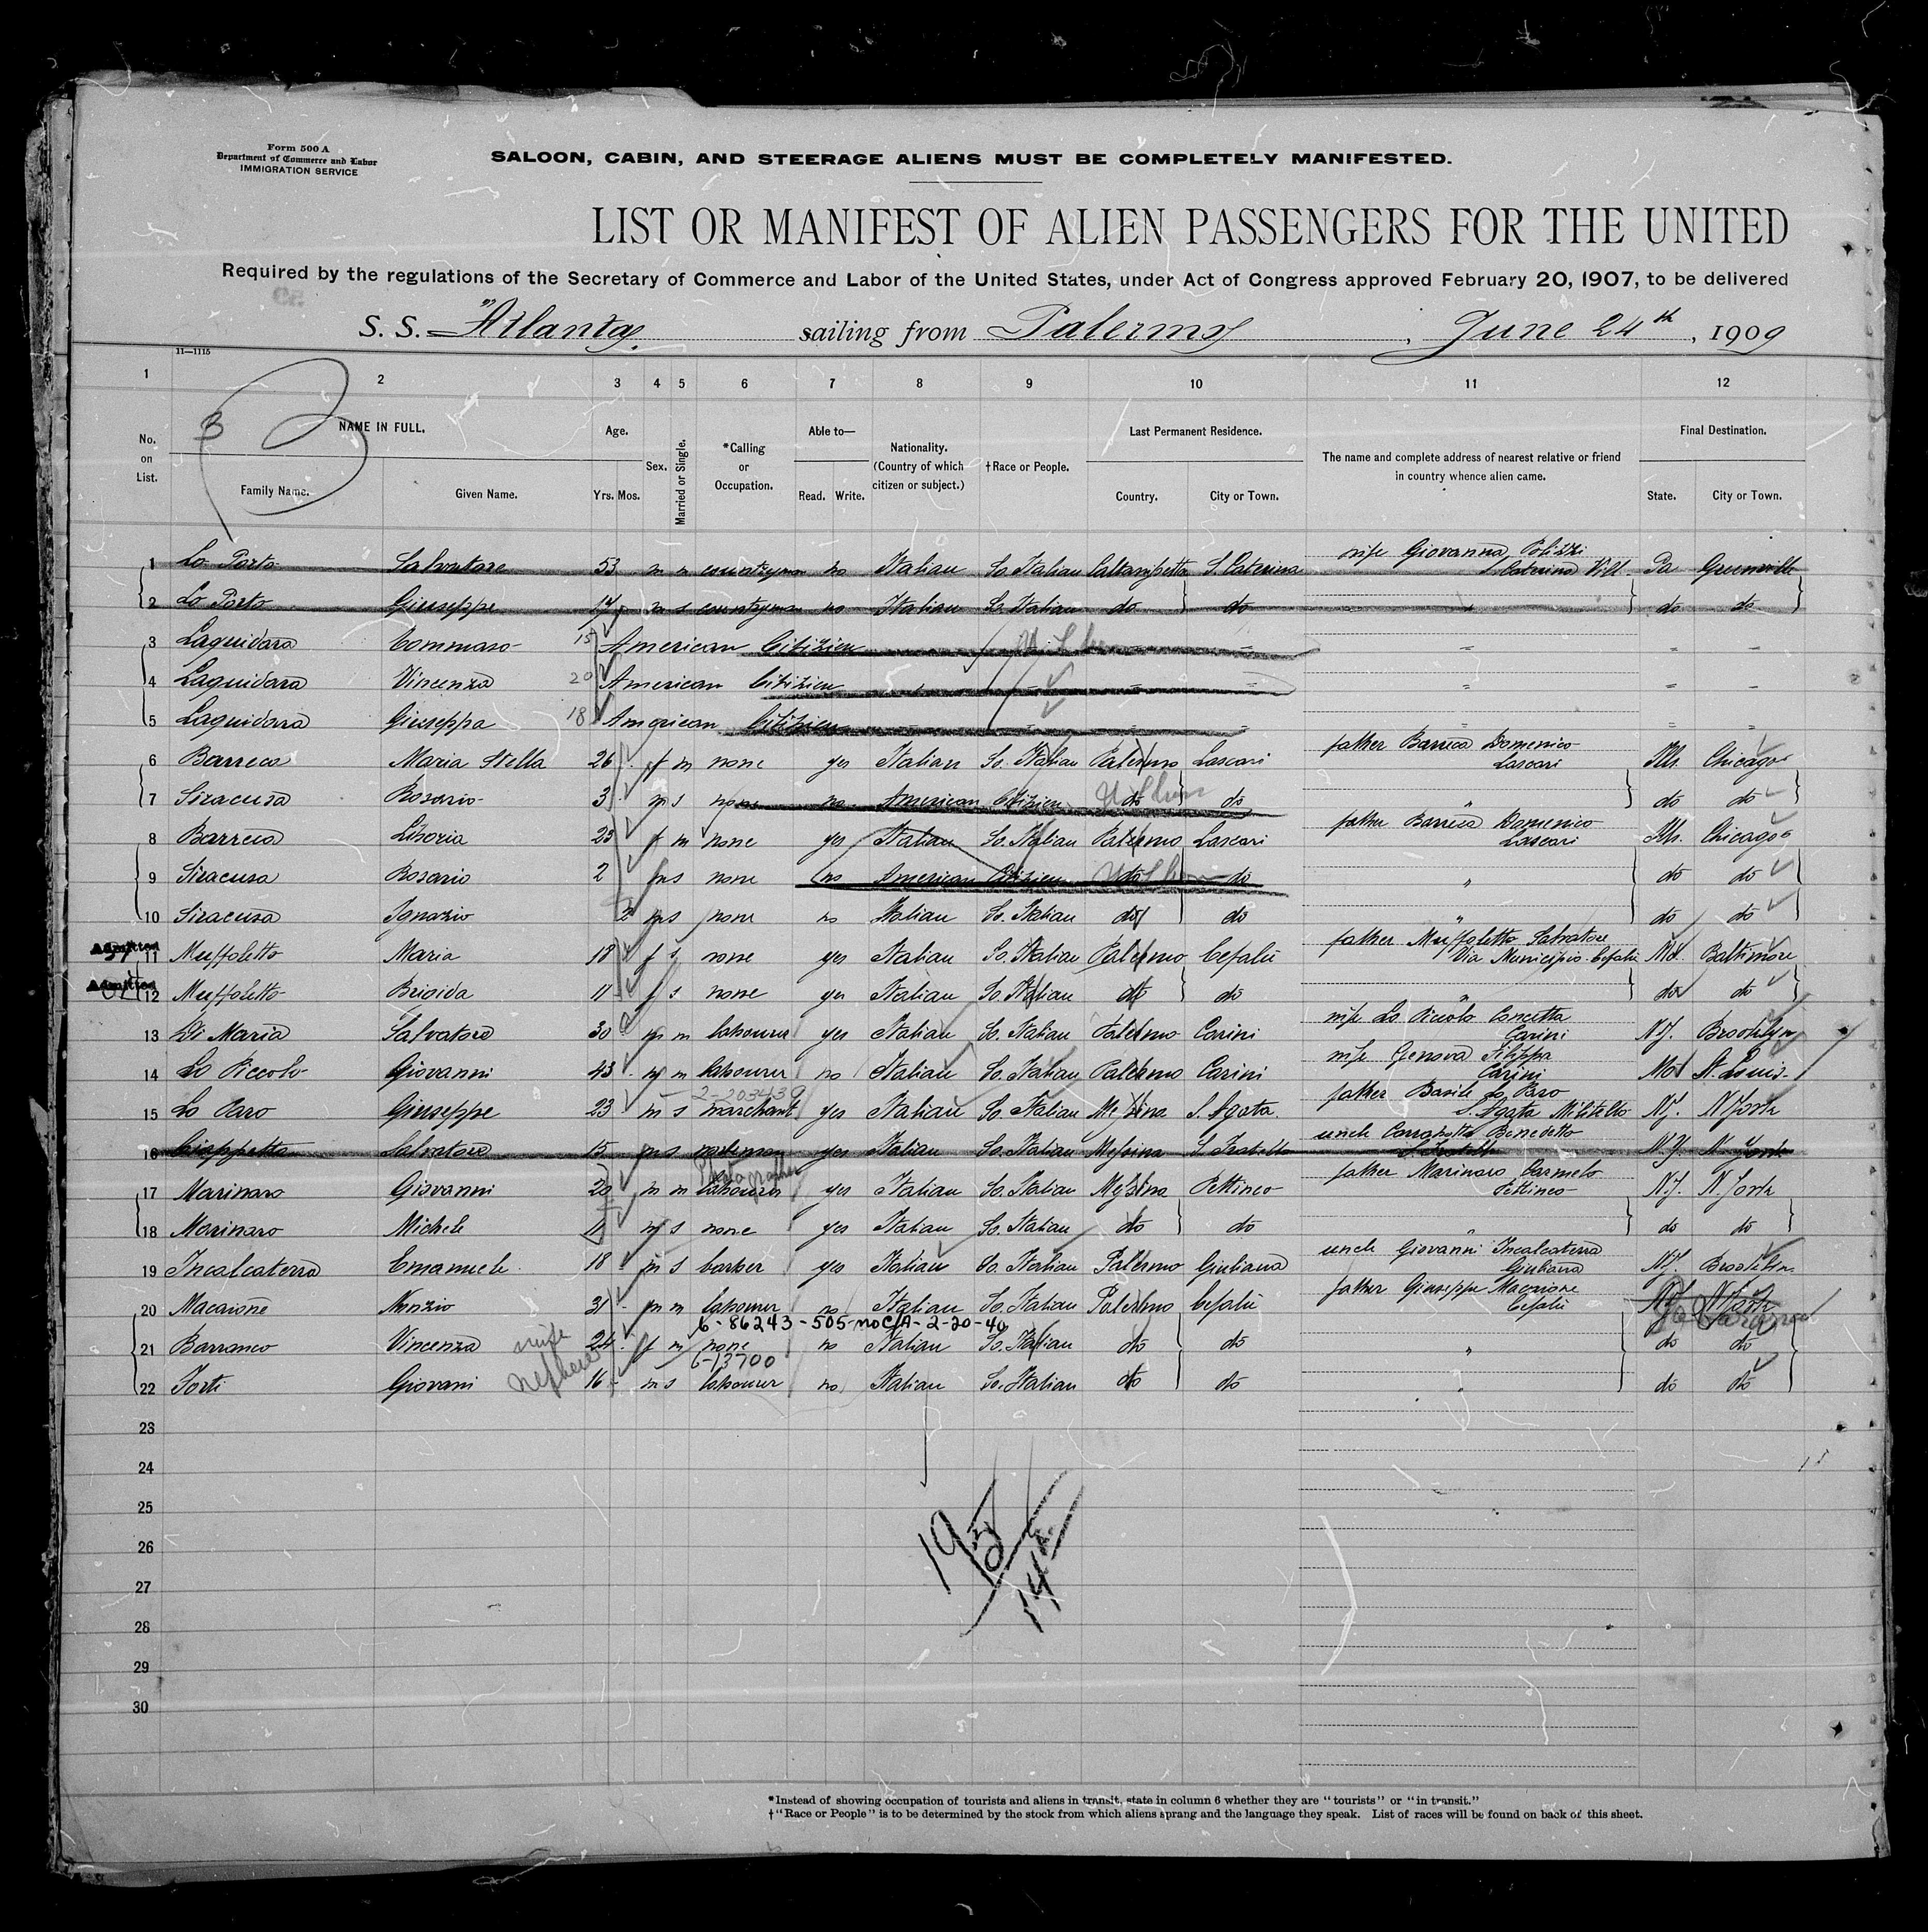 Form 500 A
Department of Commerce and Labor
IMMIGRATION SERVICE
SALOON, CABIN, AND STEERAGE ALIENS MUST BE COMPLETELY MANIFESTED.
LIST OR MANIFEST OF ALIEN PASSENGERS FOR THE UNITED
Required by the regulations of the Secretary of Commerce and Labor of the United States, under Act of Congress approved February 20, 1907, to be delivered
S. S. "Atlanta sailing from Palermo, June 24th, 1909
11—1115
1 2 3 4 5 6 7 8 9 10 11 12
3
No. on List.
NAME IN FULL.
Family Name.
Given Name.
Age.
Yrs. Mos.
Sex.
Married or Single.
*Calling or Occupation.
Able to—
Read. Write.
Nationality. (Country of which citizen or subject.)
†Race or People.
Last Permanent Residence.
Country.
City or Town.
The name and complete address of nearest relative or friend in country whence alien came.
Final Destination.
State.
City or Town.
1 Lo Porto Salvatore 53 m m countryman no Italian So. Italian Caltanissetta S. Caterina wife Giovanna Polizzi S. Caterina Vill. Pa Greenville
2 Lo Porto Giuseppe 17 m s countryman no Italian So. Italian do do " do do
3 Laquidara Tommaso 15 American Citizien " " " "
4 Laquidara Vincenza 20 American Citizien " " " "
5 Laquidara Giuseppa 18 American Citizien " " " "
6 Barreca Maria Stella 26 f m none yes Italian So. Italian Palermo Lascari father Barreca Domenico Lascari Ills. Chicago
7 Siracusa Rosario 3 m s none no American Citizien do do " do do
8 Barreca Liboria 23 f m none yes Italian So. Italian Palermo Lascari father Barreca Domenico Lascari Ills. Chicago
9 Siracusa Rosario 2 m s none no American Citizien do do " do do
10 Siracusa Ignazio m s none no Italian So. Italian do do " do do
Admitted 11 Muffoletto Maria 18 f s none yes Italian So. Italian Palermo Cefalù father Muffoletto Salvatore Via Municipio-Cefalù Md. Baltimore
Admitted 12 Muffoletto Brigida 11 f s none yes Italian So. Italian do do " do do
13 Di Maria Salvatore 30 m m labourer yes Italian So. Italian Palermo Carini wife Lo Piccolo Concetta Carini N.Y. Brooklyn
14 Lo Piccolo Giovanni 43 m m labourer no Italian So. Italian Palermo Carini wife Genova Filippa Carini Mo St. Louis
2-203439
15 Lo Paro Giuseppe 23 m s marchant yes Italian So. Italian Messina S. Agata father Basile Lo Paro S. Agata Militello N.Y. N York
16 Ciappetta Salvatore 15 m s yes Italian So. Italian Messina S. Fratello uncle Benedetto S. Fratello N.Y. N. York
Photographer
17 Marinaro Giovanni 20 m m labourer yes Italian So. Italian Messina Pettineo father Marinaro Carmelo Pettineo N.Y. N. York
18 Marinaro Michele 11 m s none yes Italian So. Italian do do " do do
19 Incalcaterra Emanuele 18 m s barber yes Italian So. Italian Palermo Giuliana uncle Giovanni Incalcaterra Giuliana N.Y. Brooklyn
20 Macaione Nunzio 31 m m labourer no Italian So. Italian Palermo Cefalù father Giuseppe Macaione Cefalù N.Y. N York
6-86243-505-no C/A-2-20-40
21 Barranco Vincenza wife 24 f m none no Italian So. Italian do do " do do
6-13700
22 Forti Giovani nephew 16 m s labourer no Italian So. Italian do do " do do
23
24
25
26
27
28
29
30
*Instead of showing occupation of tourists and aliens in transit, state in column 6 whether they are "tourists" or "in transit."
†"Race or People" is to be determined by the stock from which aliens sprang and the language they speak. List of races will be found on back of this sheet.